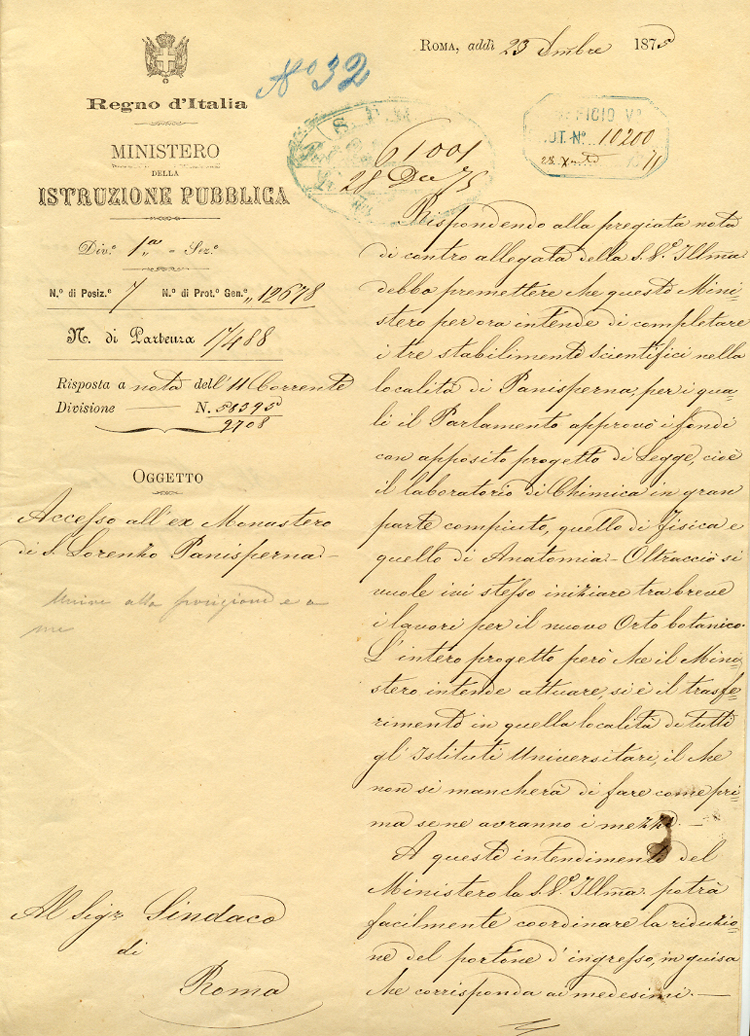 Roma, addì 23 Xmbre 1875
N° 32
Regno d'Italia
MINISTERO
DELLA
ISTRUZIONE PUBBLICA
Div.e 1a - Sez.e
N.o di Posiz.e 7 N.o di Prot.o Gen.e 12678
N. di Partenza 17488
Risposta a nota dell'11 Corrente
Divisione — N. 58395
2708
OGGETTO
Accesso all'ex Monastero
di S. Lorenzo Panisperna
Unire alla posizione e a
me
Al Sigr Sindaco
di
Roma
61001
28 Dec 75
10200
Rispondendo alla pregiata nota
di contro allegata della S.V. Illma
debbo premettere che questo Mini=
stero per ora intende di completare
i tre stabilimenti scientifici nella
località di Panisperna, per i qua=
li il Parlamento approvò i fondi
con apposito progetto di Legge, cioè
il laboratorio di Chimica in gran
parte compiuto, quello di fisica e
quello di Anatomia - Oltracciò si
vuole ivi stesso iniziare tra breve
i lavori per il nuovo Orto botanico.
L'intero progetto però che il Mini=
stero intende attuare, si è il trasfe=
rimento in quella località di tutti
gl'Istituti Universitari, il che
non si mancherà di fare come pri=
ma se ne avranno i mezzi. —
A questi intendimenti del
Ministero la S.V. Illma potrà
facilmente coordinare la riduzio=
ne del portone d'ingresso, in guisa
che corrisponda ai medesimi. —